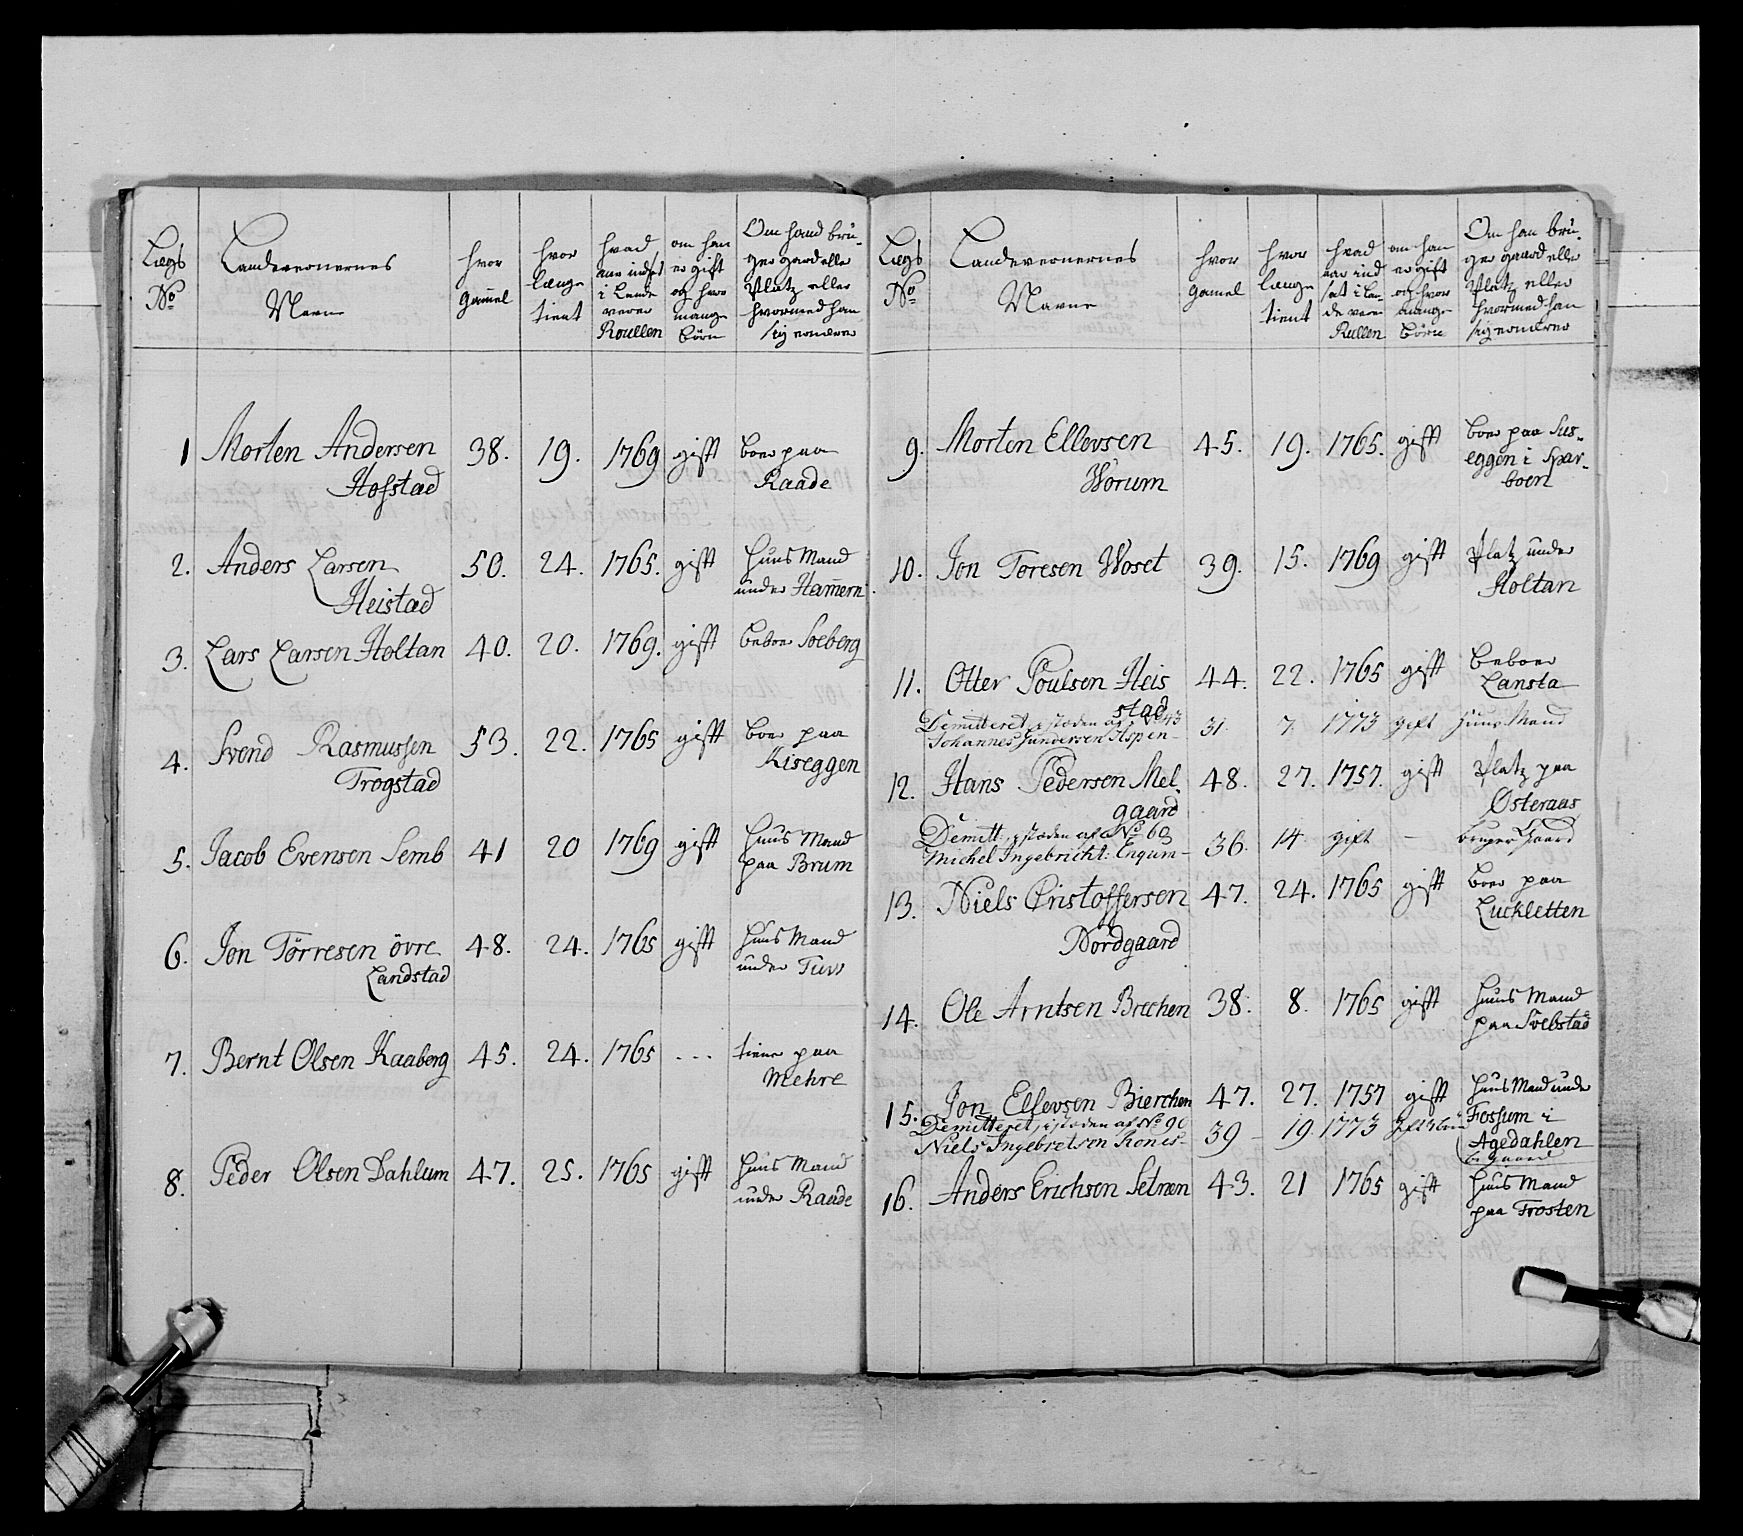 Lægs
No
Landevernernes
Navne
hvor
gamel
hvor
længe
tient
hvad
aar indsat
i Lande
verer
Roullen
om han
er gift
og hvor
mange
börn
Om hand bru-
ger gaard eller
Platz eller
hvormed han
sig ernærer
1 Morten Andersen 38. 19. 1769 gifft boer paa
Hofstad Raade
2. Anders Larsen 50. 24. 1765. gifft Huus Mand
Heistad under Hamern
3. Lars Larsen Holtan 40. 20. 1769. gifft beboer Soeberg
4. Svend Rasmussen 53. 22. 1765 gifft boer paa
Trogstad Kiseggen
5. Jacob Evensen Semb 41 20 1769 gifft Huus Mand
paa Brum
6. Jon Törresen övre 48. 24. 1765 gifft Huus Mand
Landstad under
7. Bernt Olsen Kaaberg 45. 24. 1765 ... tiener paa
Mehre
8. Peder Olsen Dahlum 47. 25. 1765 gifft Huus Mand
under Raade
Lægs
No
Landevernernes
Navne
hvor
gamel
hvor
længe
tient
hvad
aar ind
sat i Lan-
de verer
Rullen
om han
er gift
og hvor
mange
börn
Om han bru-
ger gaard eller
Platz eller
hvormed han
sig ernærer
9. Morten Ellevsen 45. 19. 1765. gifft boer paa Sus-
Worum eggen i Spar-
boen
10. Jon Toresen Woset 39. 15. 1769 gifft Platz under
Holtan
11. Otter Poulsen Heis 44. 22. 1765 gifft beboer
stad Lansta
Demitteret, istæden af No 43
Johannes Gundersen Aspen- 31 7. 1773 gift Huus Mand
12. Hans Pedersen Mel- 48. 27. 1757. gifft Platz paa
gaard Østeraas
Demitt: istæden af No 60
Michel Ingebricht: Engum- 36. 14 gift - bruger Gaard
13. Niels Cristoffersen 47. 24. 1765 gifft boer paa
Nordgaard Luckletten
14. Ole Arntsen Brechen 38. 8. 1765 gifft Huus Mand
paa Svebstad
15. Jon Ellevsen Bierchen 47. 27. 1757 gifft Huus Mand under
Demitteret, istæden af No 90 Fossum i
Niels Ingebretsen Rones- 39 - 19. 1773 Agedahlen
16. Anders Erichsen Selnæn 43. 21 1765 gifft Huus Mand
paa Frosten